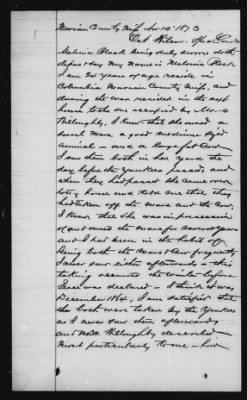 Marion County Miss Nov 14th 1873
Malvina Black being duly sworn doth
depose & say My name is Malvina Black
I am 34 years of age reside in
Columbia Marion County Miss, and
during the war resided in the next
house to the one occupied by Mrs
Willoughby, I knew that she owned a
Sorrel Mare a good medium sized
animal – and a large fat Cow
I saw them both in her yard the
day before the Yankees passed and
when they had passed she came over
to my house and told me that they
had taken off the mare and the Cow,
I know that she was in possession
of and owned the mare for several years
and I had been in the habit of
seeing both the Mare & Cow frequently
I never saw either afterwards – this
taking occurred the winter before
Peace was declared – I think it was
December 1864, I am satisfied that
the both were taken by the Yankees
as I never saw them afterwards
and Mrs Willoughby described
most particularly to me – how